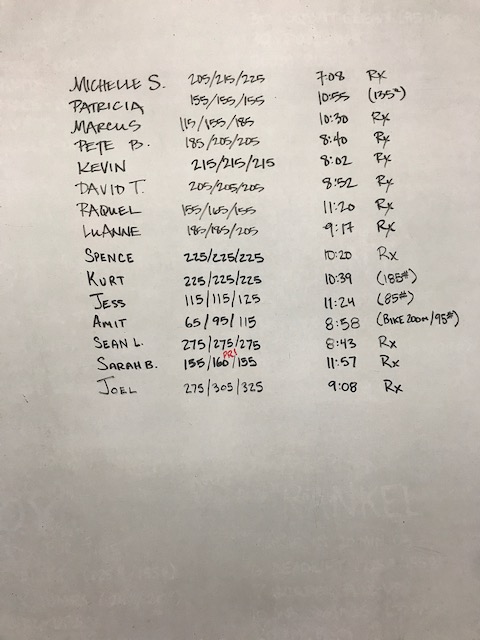 MICHELLE S. 205/215/225 7:08 Rx
PATRICIA 155/155/155 10:55 (135#)
MARCUS 115/155/185 10:30 Rx
PETE B. 185/205/205 8:40 Rx
KEVIN 215/215/215 8:02 Rx
DAVID T. 205/205/205 8:52 Rx
RAQUEL 155/165/155 11:20 Rx
LUANNE 185/185/205 9:17 Rx
SPENCE 225/225/225 10:20 Rx
KURT 225/225/225 10:39 (185#)
JESS 115/115/125 11:24 (85#)
AMIT 65/95/115 8:58 (BIKE 200m/95#)
SEAN L. 275/275/275 8:43 Rx
PR!
SARAH B. 155/160/155 11:57 Rx
JOEL 275/305/325 9:08 Rx